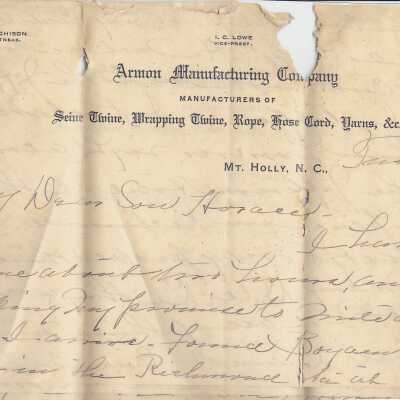 CHISON
TREAS.
I. C. LOWE
VICE-PREST.
Armon Manufacturing Company
MANUFACTURERS OF
Seine Twine, Wrapping Twine, Rope, Hose Cord, Yarns, &c.
MT. HOLLY, N. C.,
Dear Son Horace.
I
about two hours, an
my promise to
I arrive. Found Bryan
in the Richmond